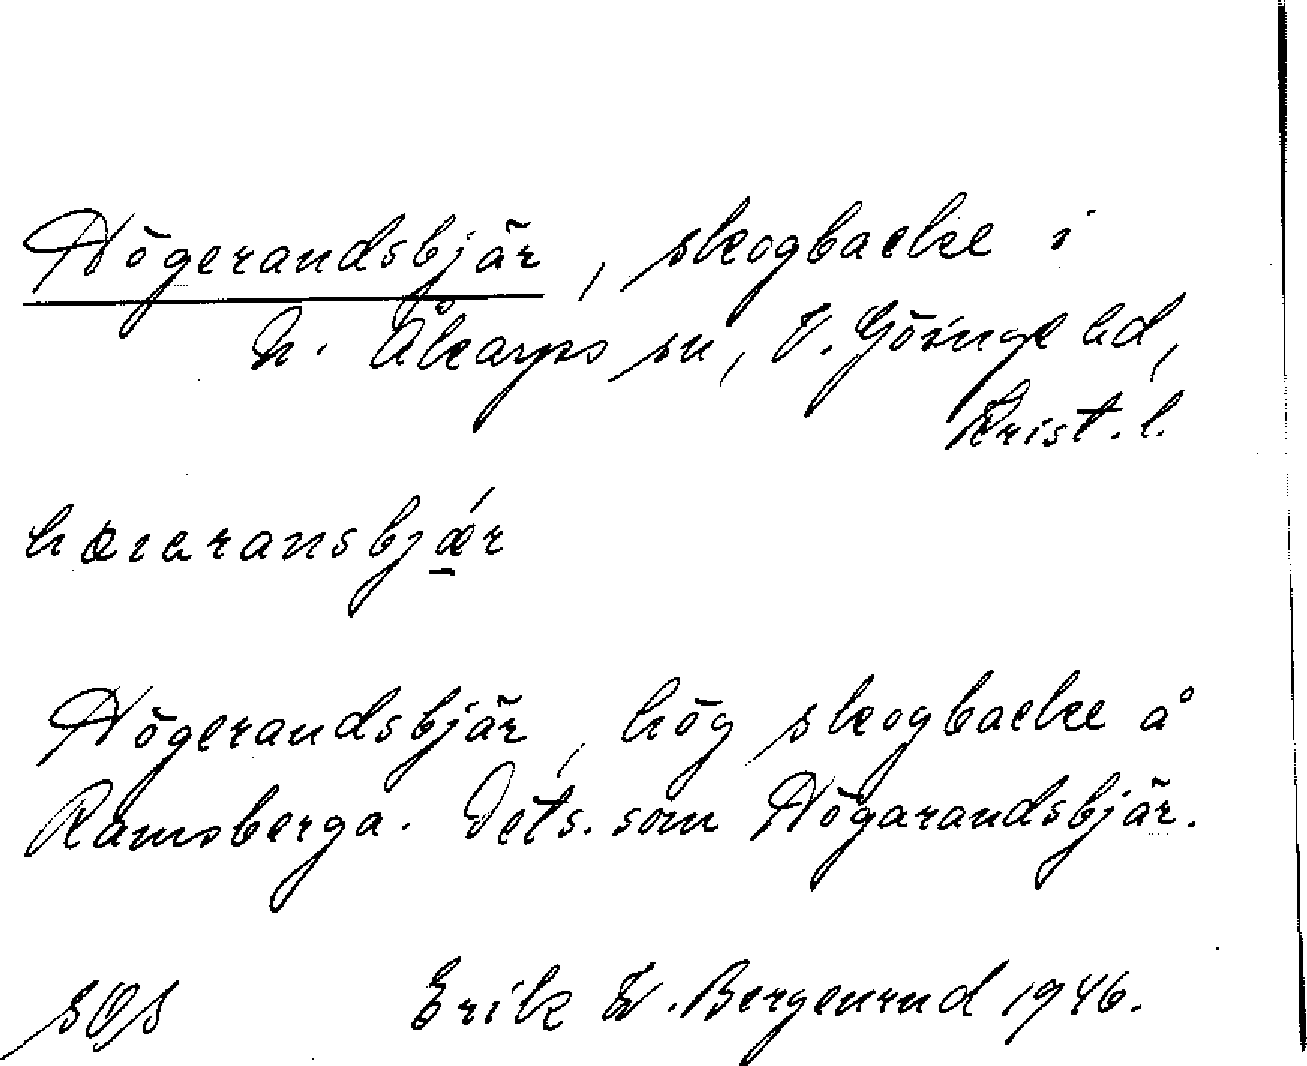 Högerandsbjär, skogbacke i
N. Åkarps sn, V. Göinge hd,
Krist. l.
Högerandsbjär, hög skogbacke å
Ramsberga. Dets. som Högarandsbjär.
SOS Erik W. Bergenrud 1946.